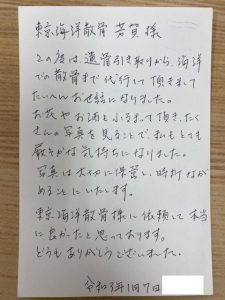 東京海洋散骨 若賀 様
この度は、遺骨引き取りから、海洋
での散骨まで代行して頂きまして
たいへんお世話になりました。
お花やお酒もふるまって頂き、たく
さんの写真を見ることで、私もとても
厳かな気持ちになりました。
写真は大切に保管し、時折なが
めることにいたします。
東京海洋散骨様に依頼して本当
に良かったと思っております。
どうもありがとうございました。
令和3年1月7日